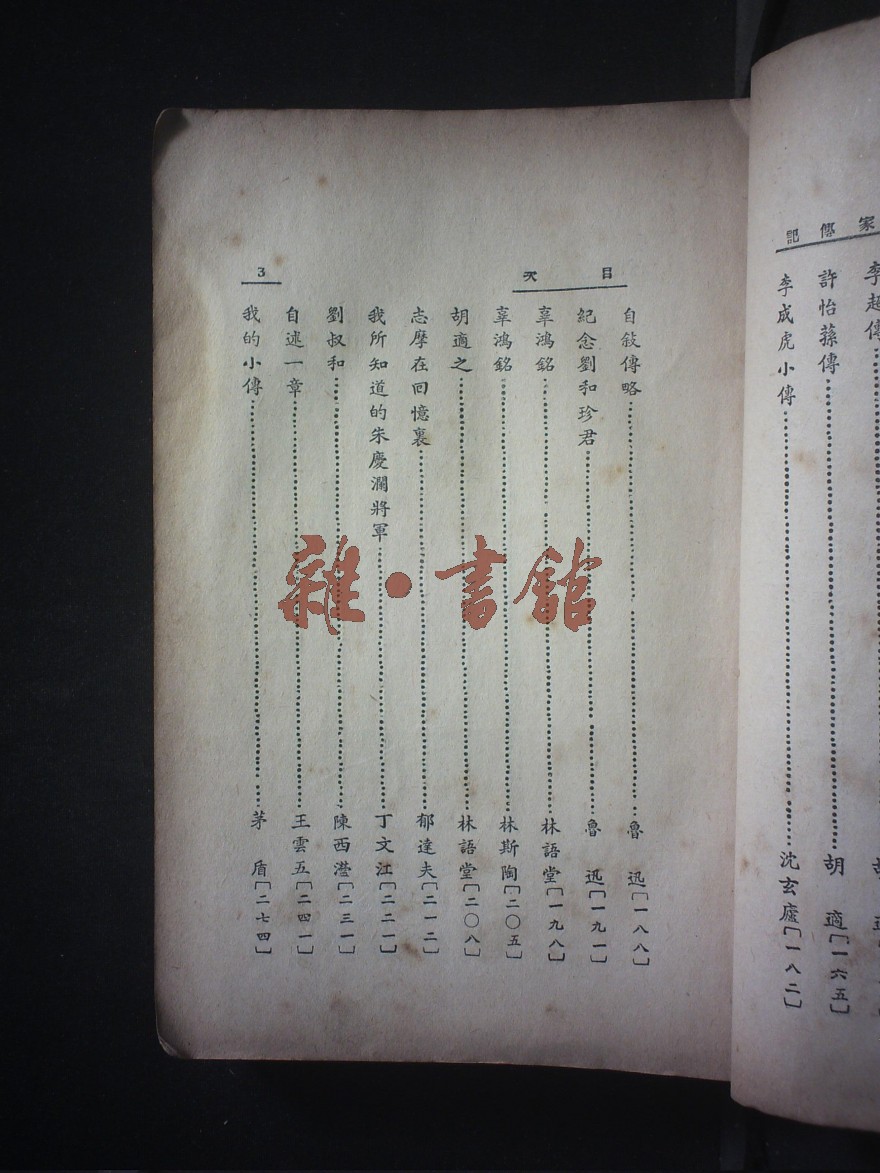 家傳記
李超傳
許怡蓀傳 胡適[一六五]
李成虎小傳 沈玄廬[一八二]
目次
自敍傳略 魯迅[一八八]
紀念劉和珍君 魯迅[一九一]
辜鴻銘 林語堂[一九八]
辜鴻銘 林斯陶[二〇五]
胡適之 林語堂[二〇八]
志摩在回憶裏 郁達夫[二一二]
我所知道的朱慶瀾將軍 丁文江[二二一]
劉叔和 陳西瀅[二三一]
自述一章 王雲五[二四一]
我的小傳 茅盾[二七四]
3
雜·書館